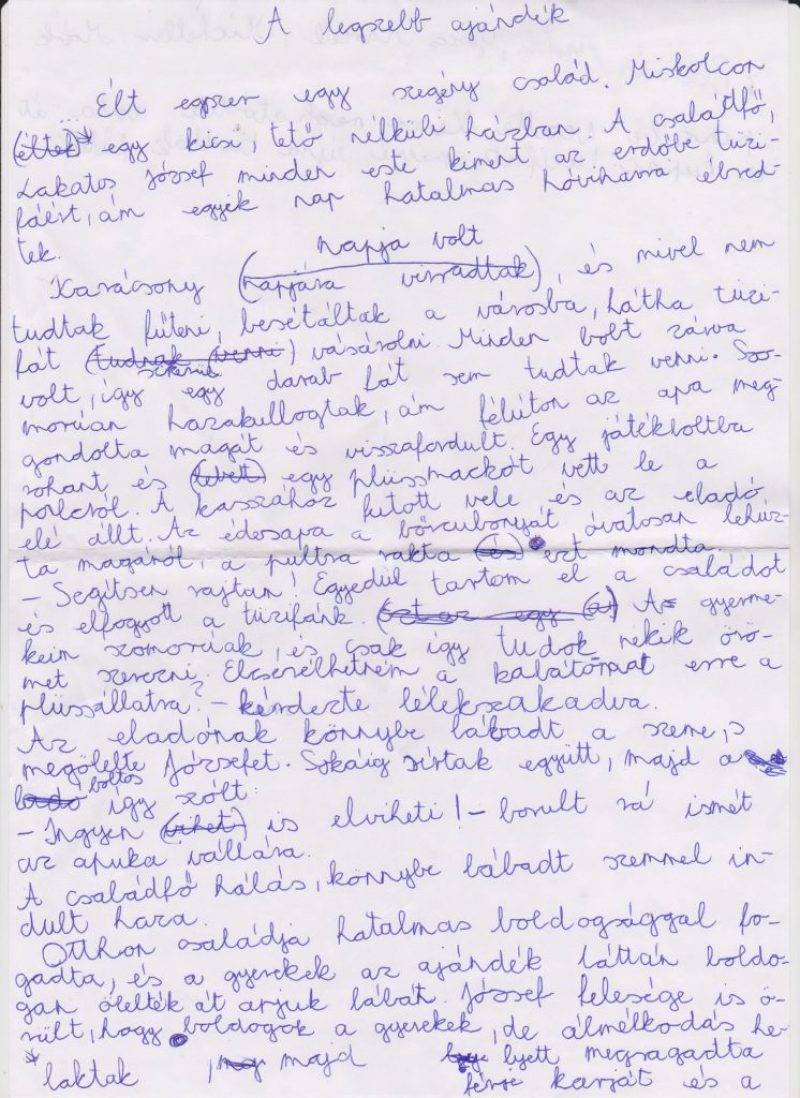 A legszebb ajándék
Élt egyszer egy szegény család. Miskolcon
(éltek)* egy kicsi, tető nélküli házban. A családfő,
Lakatos József minden este kiment az erdőbe tűzi-
fáért, ám egyik nap hatalmas hóviharra ébred-
tek.
napja volt
Karácsony (napjára virradtak), és mivel nem
tudtak fűteni, besétáltak a városba, hátha tűzi-
fát (tudnak venni) vásárolni. Minden bolt zárva
volt, így egy darab fát sem tudtak venni. Szo-
morúan hazakullogtak, ám félúton az apa meg-
gondolta magát és visszafordult. Egy játékboltba
rohant és (levett) egy plüssmackót vett le a
polcról. A kasszához futott vele és az eladó
elé állt. Az édesapa a bőrcubonyát óvatosan lehúz-
ta magáról, a pultra rakta (és) ezt mondta:
- Segítsen rajtam! Egyedül tartom el a családot
és elfogyott a tűzifánk. A gyerme-
keim szomorúak, és csak így tudok nekik örö-
met szerezni. Elcserélhetném a kabátomat erre a
plüssállatra? - kérdezte lélekszakadva.
Az eladónak könnybe lábadt a szeme,
megölelte Józsefet. Sokáig sírtak együtt, majd a
boltos
így szólt:
- Ingyen (vihet) is elviheti! - borult rá ismét
az apuka vállára.
A családfő hálás, könnybe lábadt szemmel in-
dult haza.
Otthon családja hatalmas boldogsággal fo-
gadta, és a gyerekek az ajándék láttán boldo-
gan ölelték át apjuk lábát. József felesége is ö-
rült, hogy boldogok a gyerekek, de álmélkodás he-
* laktak , majd lyett megragadta
férje karját és a